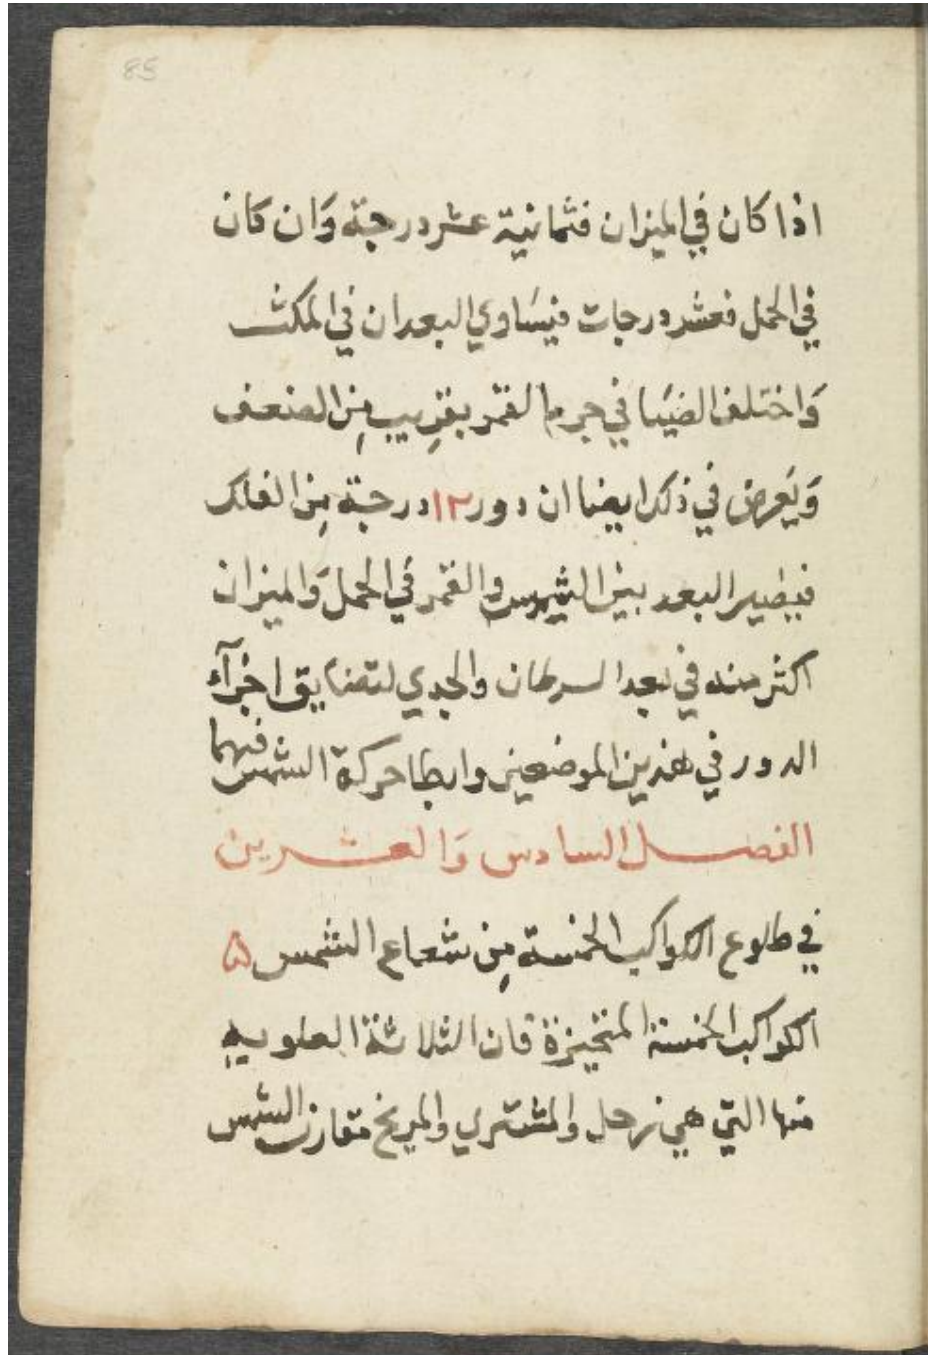 85
اذا كان في الميزان فثمانية عشر درجة وَان كان
في الحمل فعشر درجات فيتسَاوي البعدان في المكث
وَاختلف الضيَا في جرم القمر بقرِيب مِن الضعف
وَيَعرض في ذلك ايضا ان دور ١٢ درجة مِن الفلك
فيصير البعد بين الشمس والقمر في الحمل وَالميزان
اكثر منه في بعد السرطان والجدي لتضايق اجزآء
الدور في هذين الموضعين وابطا حركة الشمس فيهما
الفصل السادس وَالعشرين
في طلوع الكواكب الخمسة مِن شعاع الشمس ۵
الكواكب الخمسة المتحيزة فان الثلاثة العلويه
منها التي هي زحل والمشتري والمريخ متقارن الشمس